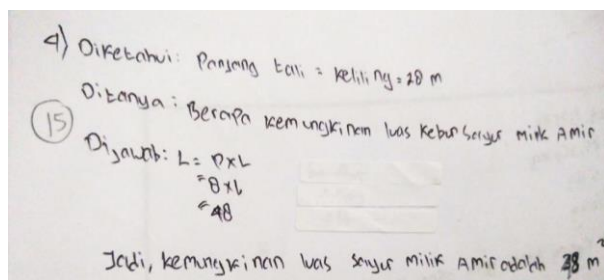 4) Diketahui: Panjang tali = keliling = 28 m
Ditanya: Berapa kemungkinan luas kebun sayur milik Amir
15
Dijawab: L = P x L
= 8 x 6
= 48
Jadi, kemungkinan luas sayur milik Amir adalah 38 m²